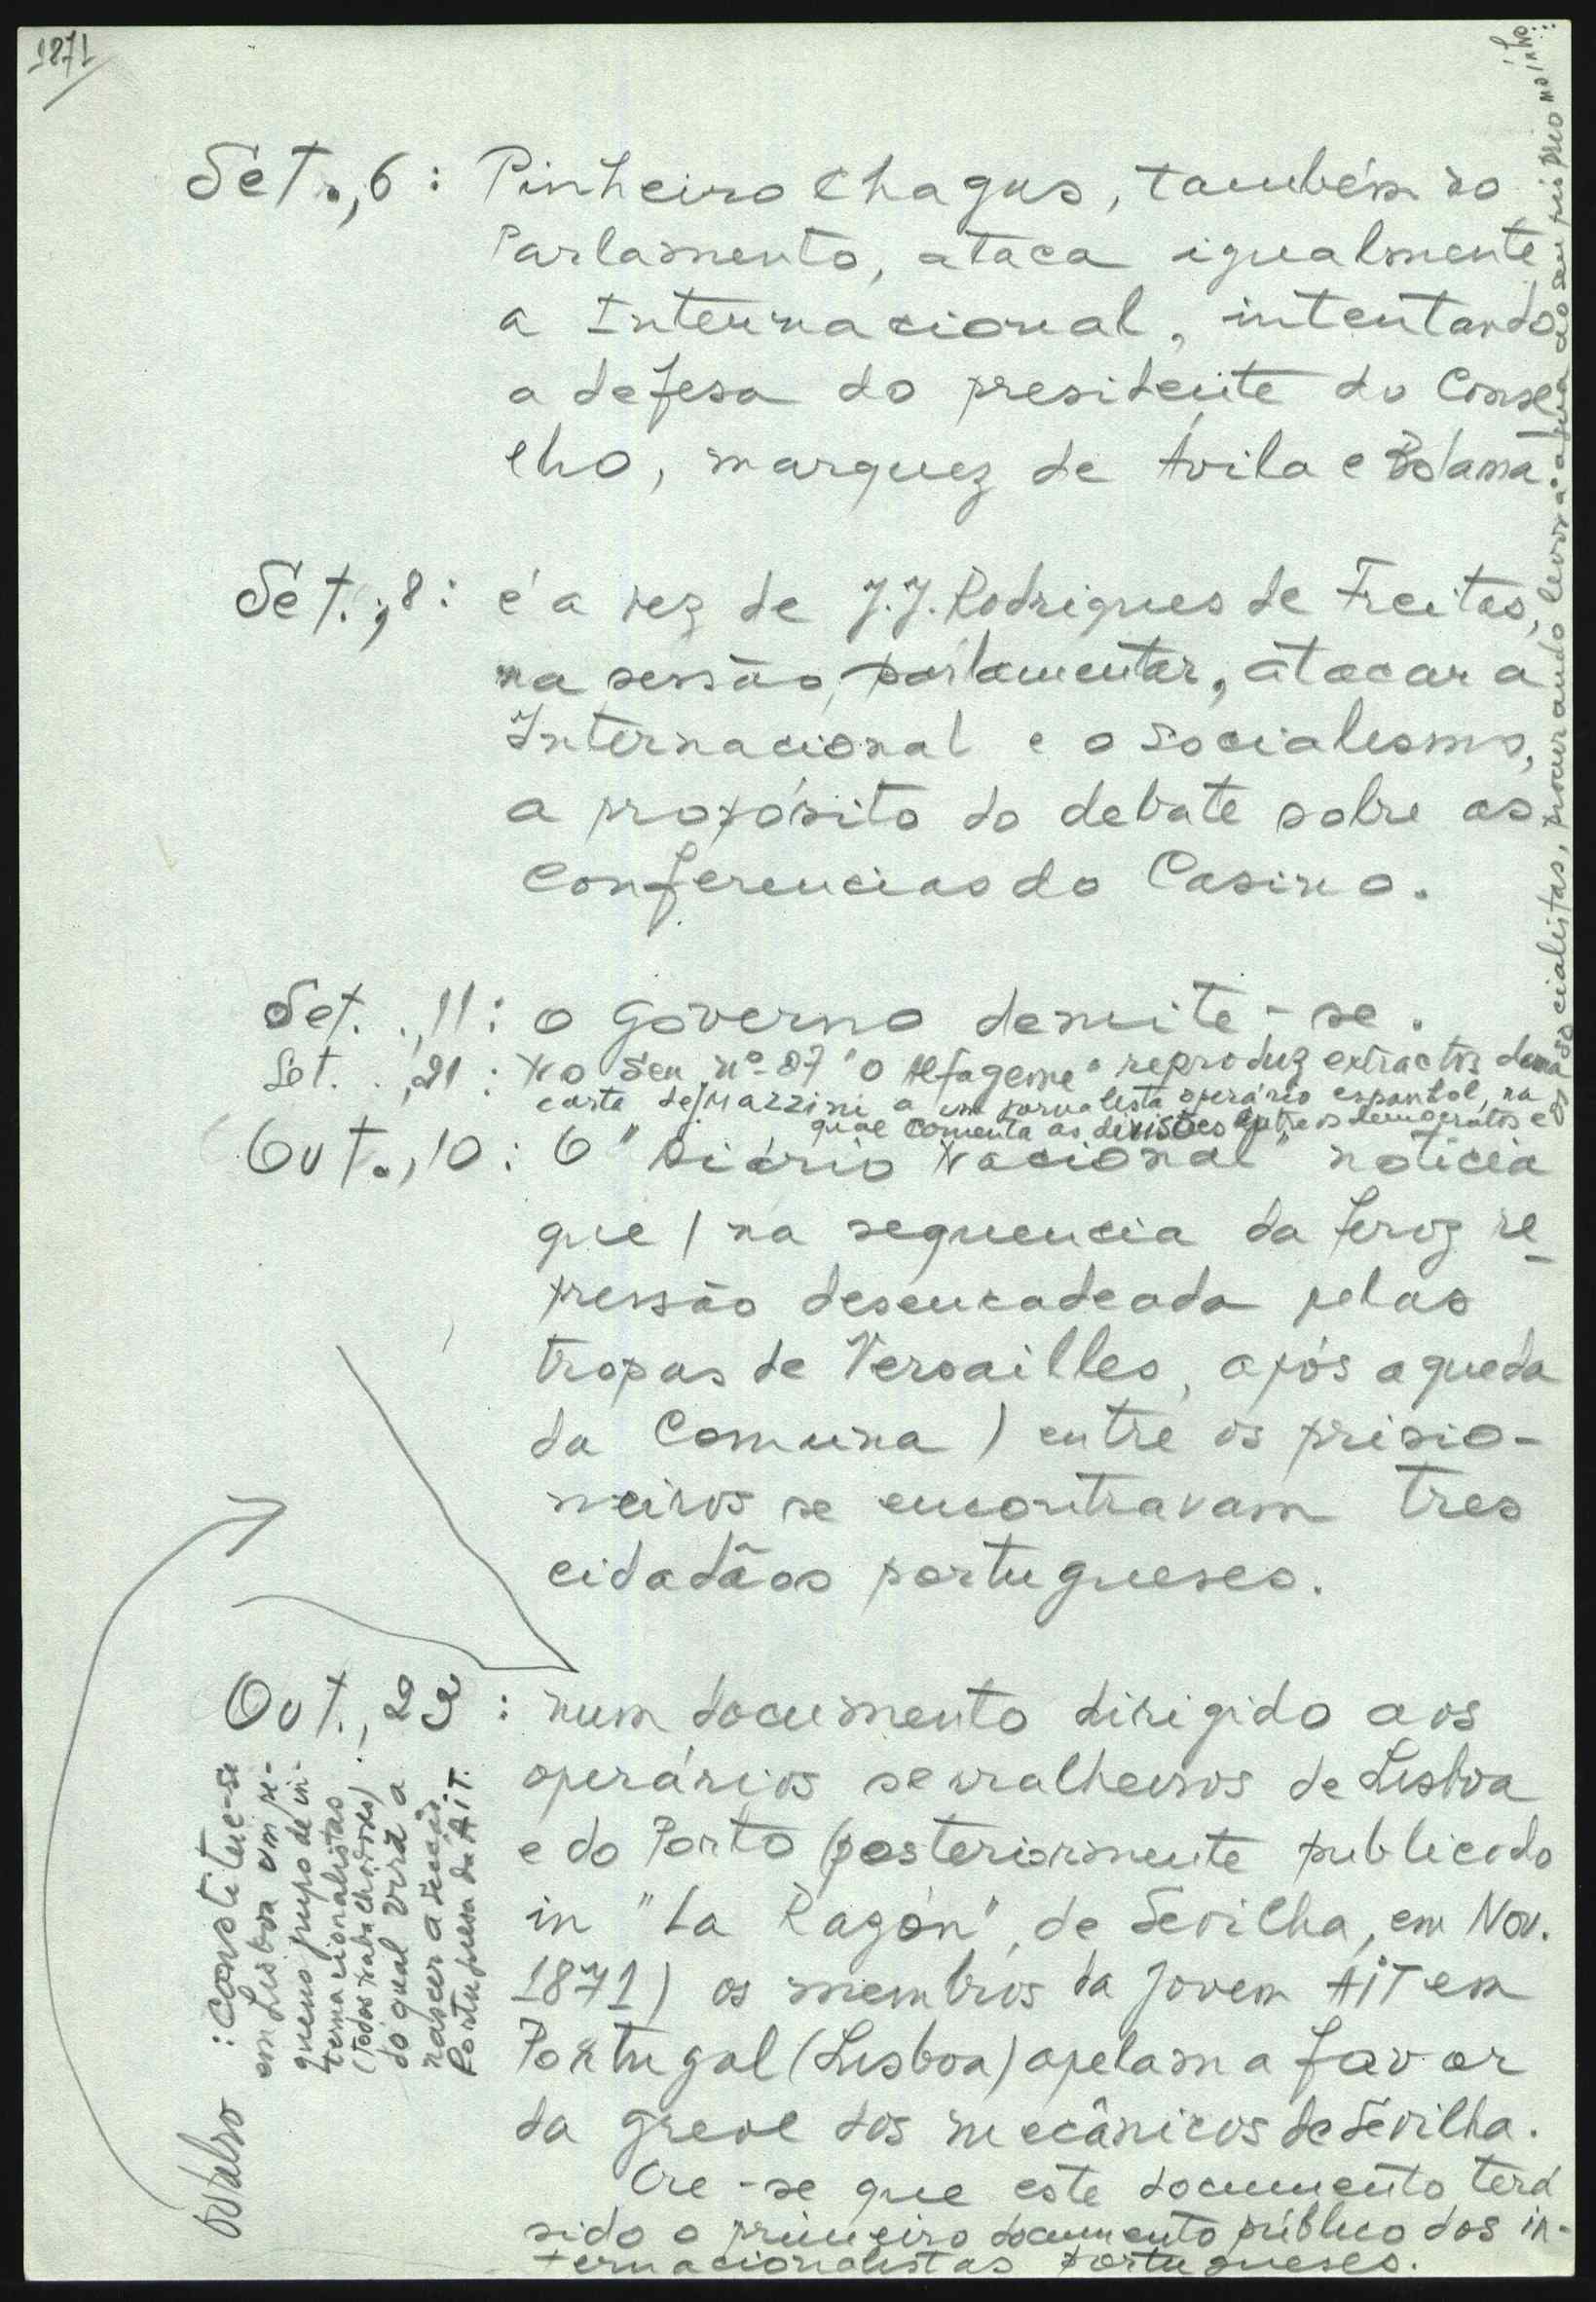 1871
Set., 6 : Pinheiro Chagas, também no
Parlamento, ataca igualmente
a Internacional, intentando
a defesa do presidente do Conse
lho, marquez de Ávila e Bolama.
Set., 8 : é a vez de J.J. Rodrigues de Freitas,
na sessão parlamentar, atacar a
Internacional e o socialismo,
a propósito do debate sobre as
Conferencias do Casino.
Set., 11 : o governo demite-se.
Set., 21 : No seu nº 87 "O Alfageme" reproduz extractos duma
carta de J. Mazzini a um jornalista operário espanhol, na
qual comenta as divisões entre os democratas e
os socialistas, procurando levar a água ao seu próprio moinho...
Out., 10 : O "Diário Nacional" noticia
que / na sequencia da feroz re-
pressão desencadeada pelas
tropas de Versailles, após a queda
da Comuna ) entre os prisio-
neiros se encontravam tres
cidadãos portugueses.
Out., 22 : num documento dirigido aos
operários serralheiros de Lisboa
e do Porto (posteriormente publicado
in "La Razón", de Sevilha, em Nov.
1871) os membros da jovem AIT em
Portugal (Lisboa) apelam a favor
da greve dos mecânicos de Sevilha.
Cre-se que este documento terá
sido o primeiro documento público dos in-
ternacionalistas portugueses.
Outubro : constitue-se
em Lisboa um pe-
queno grupo de in-
ternacionalistas
(todos trabalhadores)
do qual virá a
nascer a secção
Portuguesa da AIT.